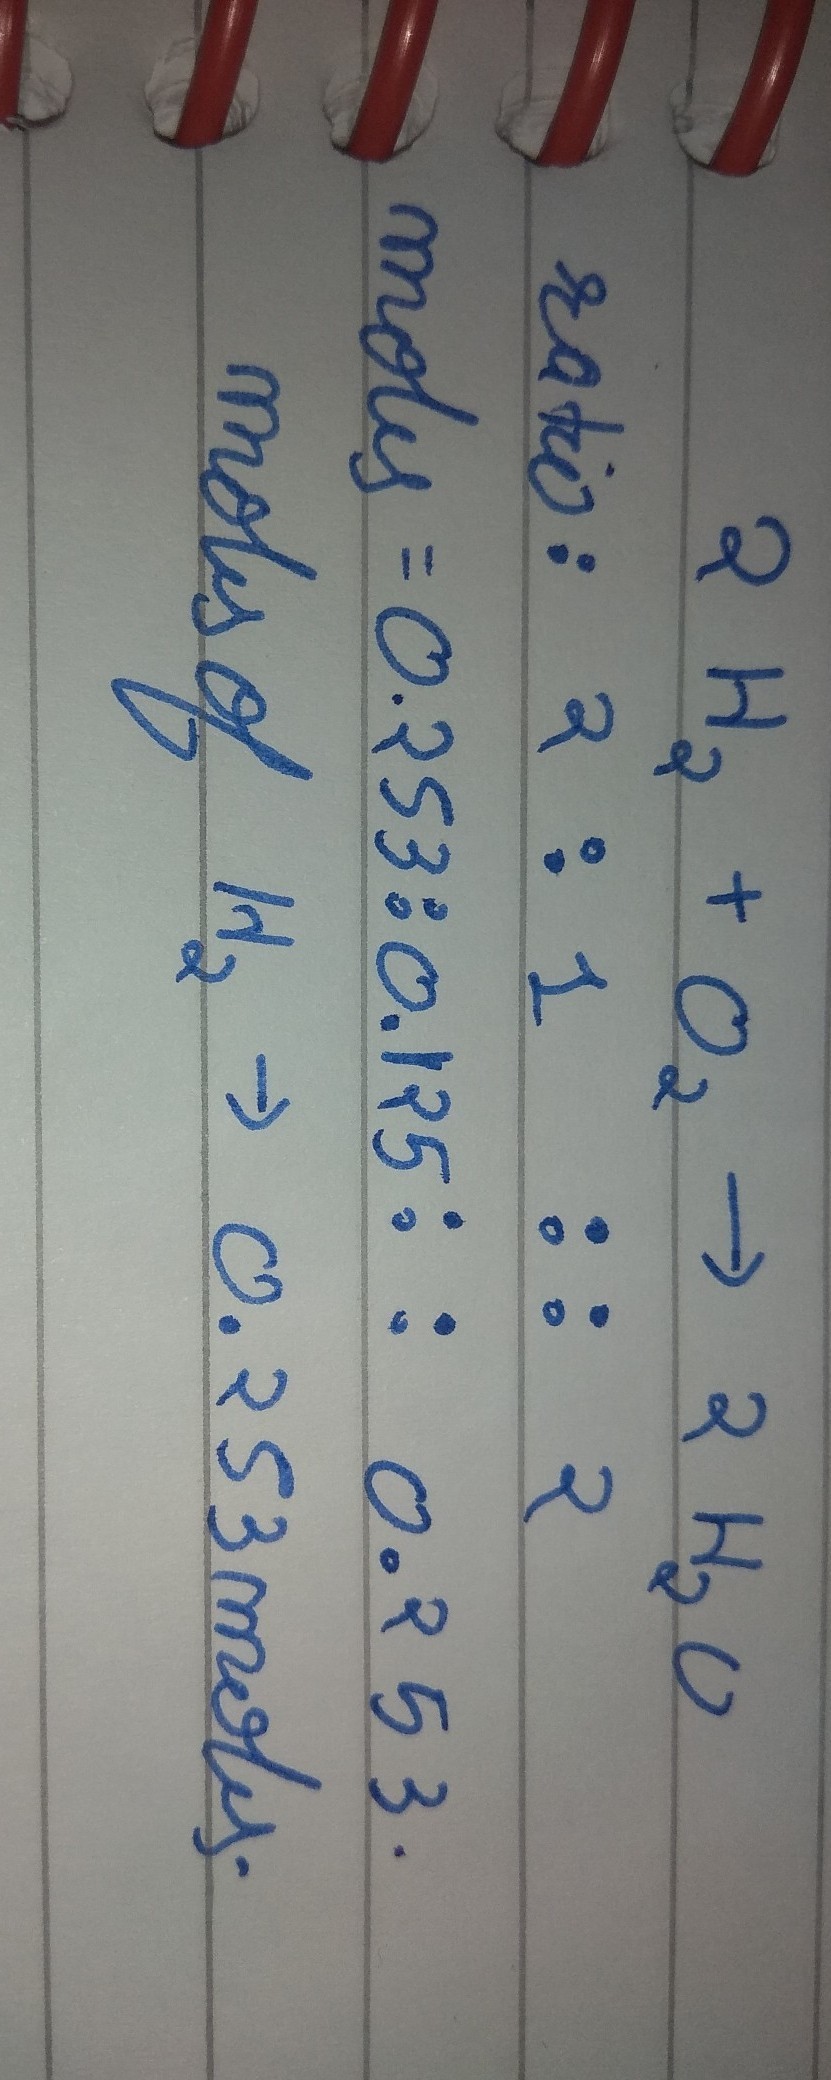 2 H₂ + O₂ → 2 H₂O
ratio: 2 : 1 :: 2
moles = 0.253:0.125 :: 0.253.
moles of H₂ → 0.253 moles.